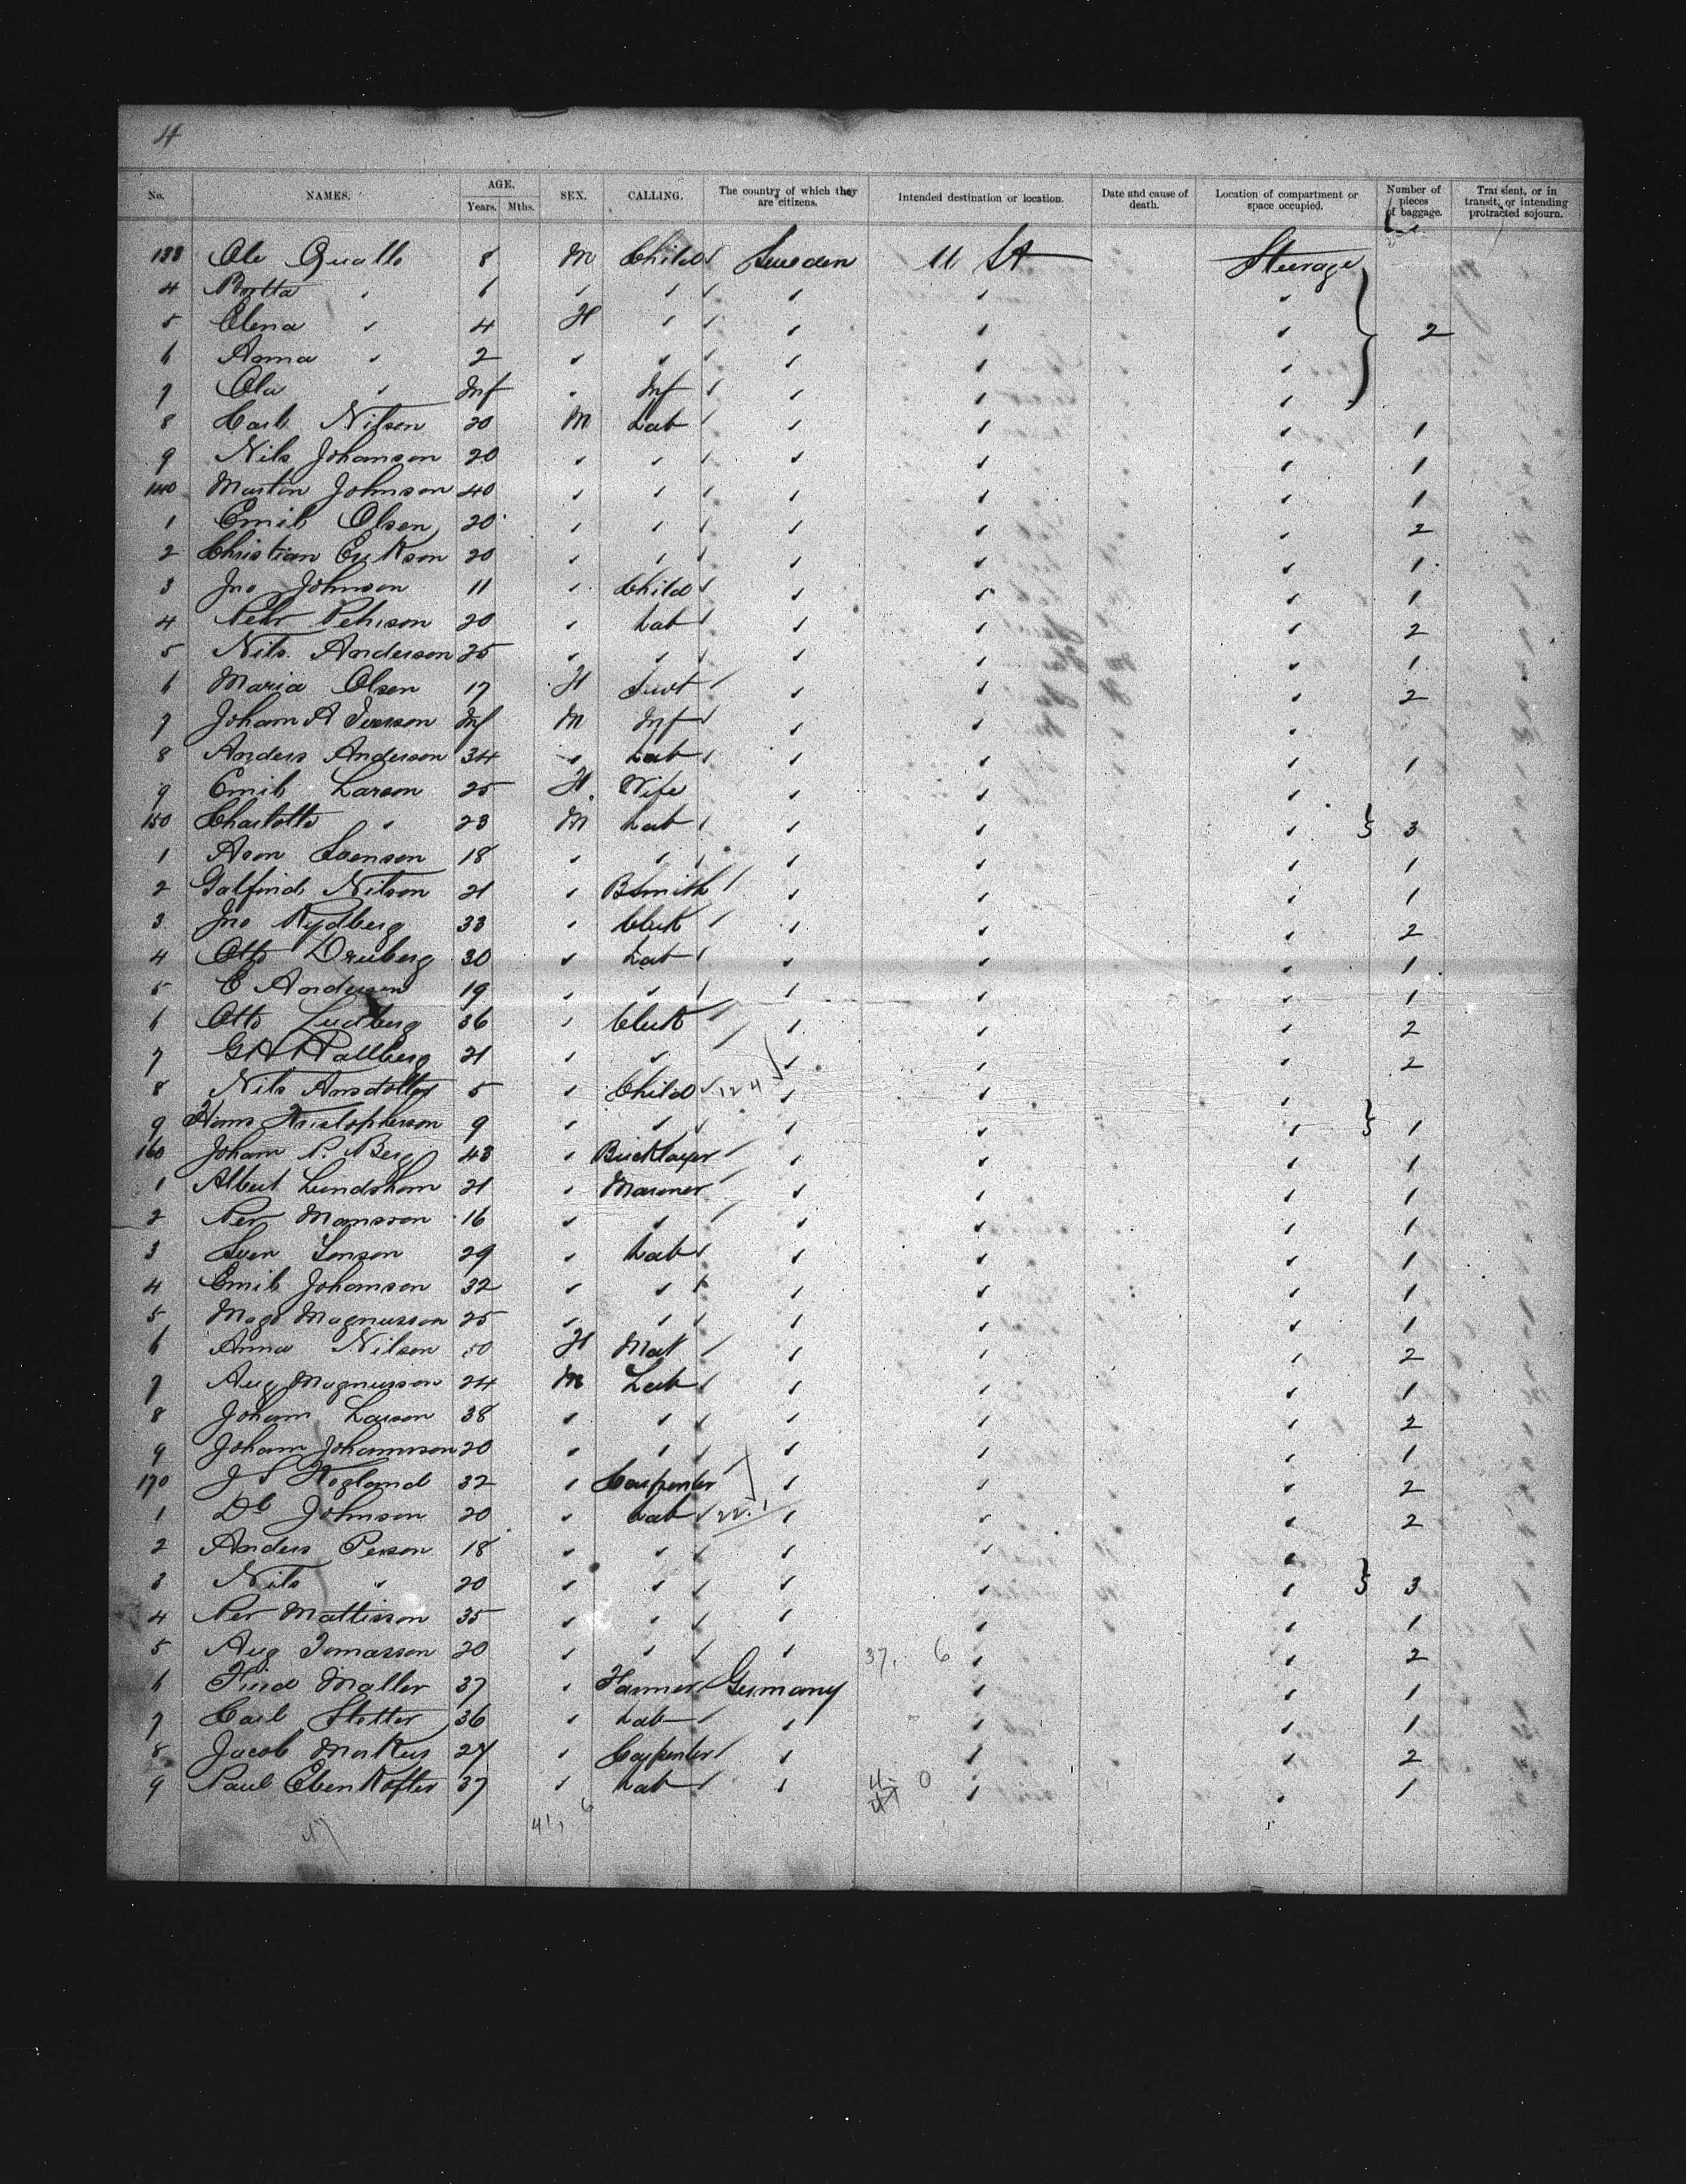 4
No. NAMES. AGE. Years. Mths. SEX. CALLING. The country of which they are citizens. Intended destination or location. Date and cause of death. Location of compartment or space occupied. Number of pieces of baggage. Transient, or in transit, or intending protracted sojourn.
133 Ole 8 M Child Sweden U St Steerage
4 " 6 " " " " "
5 Elena " 4 F " " " " 2
6 Anna " 2 " " " " "
7 Ola " Inf " Inf " " "
8 Carl Nilson 20 M Lab " " " 1
9 Nils Johanson 20 " " " " " 1
140 Martin Johnson 40 " " " " " 1
1 Emil Olsen 20 " " " " " 2
2 Christian Erikson 20 " " " " " 1
3 Jno Johnson 11 " Child " " " 1
4 Petr Pehrson 20 " Lab " " " 2
5 Nils Anderson 25 " " " " " 1
6 Maria Olsen 17 F Servt " " " 2
7 Johan A Inf M Inf " " "
8 Anders Anderson 34 " Lab " " " 1
9 Emil Larson 25 F Wife " " "
150 Charlotte " 23 M Lab " " " 3
1 Aron Svenson 18 " " " " " 1
2 Nilson 21 " BSmith " " " 1
3 Jno Rydberg 33 " Clerk " " " 2
4 Otto 30 " Lab " " " 1
5 C Anderson 19 " " " " " 1
6 Otto 36 " Clerk " " " 2
7 Hallberg 21 " " " " " 2
8 Nils 5 " Child 124 " " "
9 Hans Kristopherson 9 " " " " " 1
160 Johan P. Berg 43 " Bricklayer " " " 1
1 Albert 21 " Mariner " " " 1
2 Per Mansson 16 " " " " " 1
3 Sven 29 " Lab " " " 1
4 Emil Johanson 32 " " " " " 1
5 Mags Magnusson 25 " " " " " 1
6 Anna Nilson F Mat " " " 2
7 Aug Magnusson 24 M Lab " " " 1
8 Johan Larson 38 " " " " " 2
9 Johan Johannson 20 " " " " " 1
170 J S Hogland 32 " Carpenter " " " 2
1 Johnson 20 " Lab 22.1 " " " 2
2 Anders Person 18 " " " " "
3 Nils " 20 " " " " " 3
4 Per Mattisson 35 " " " " " 1
5 Aug Tomasson 20 " " " 37. 6 " " 2
6 Fried Moller 37 " Farmer Germany " " 1
7 Carl Stetter 36 " Lab " " " 1
8 Jacob Markus 27 " Carpenter " " " 2
9 Paul Ebenkofler 37 " Lab " 4 0 " " 1
41, 6